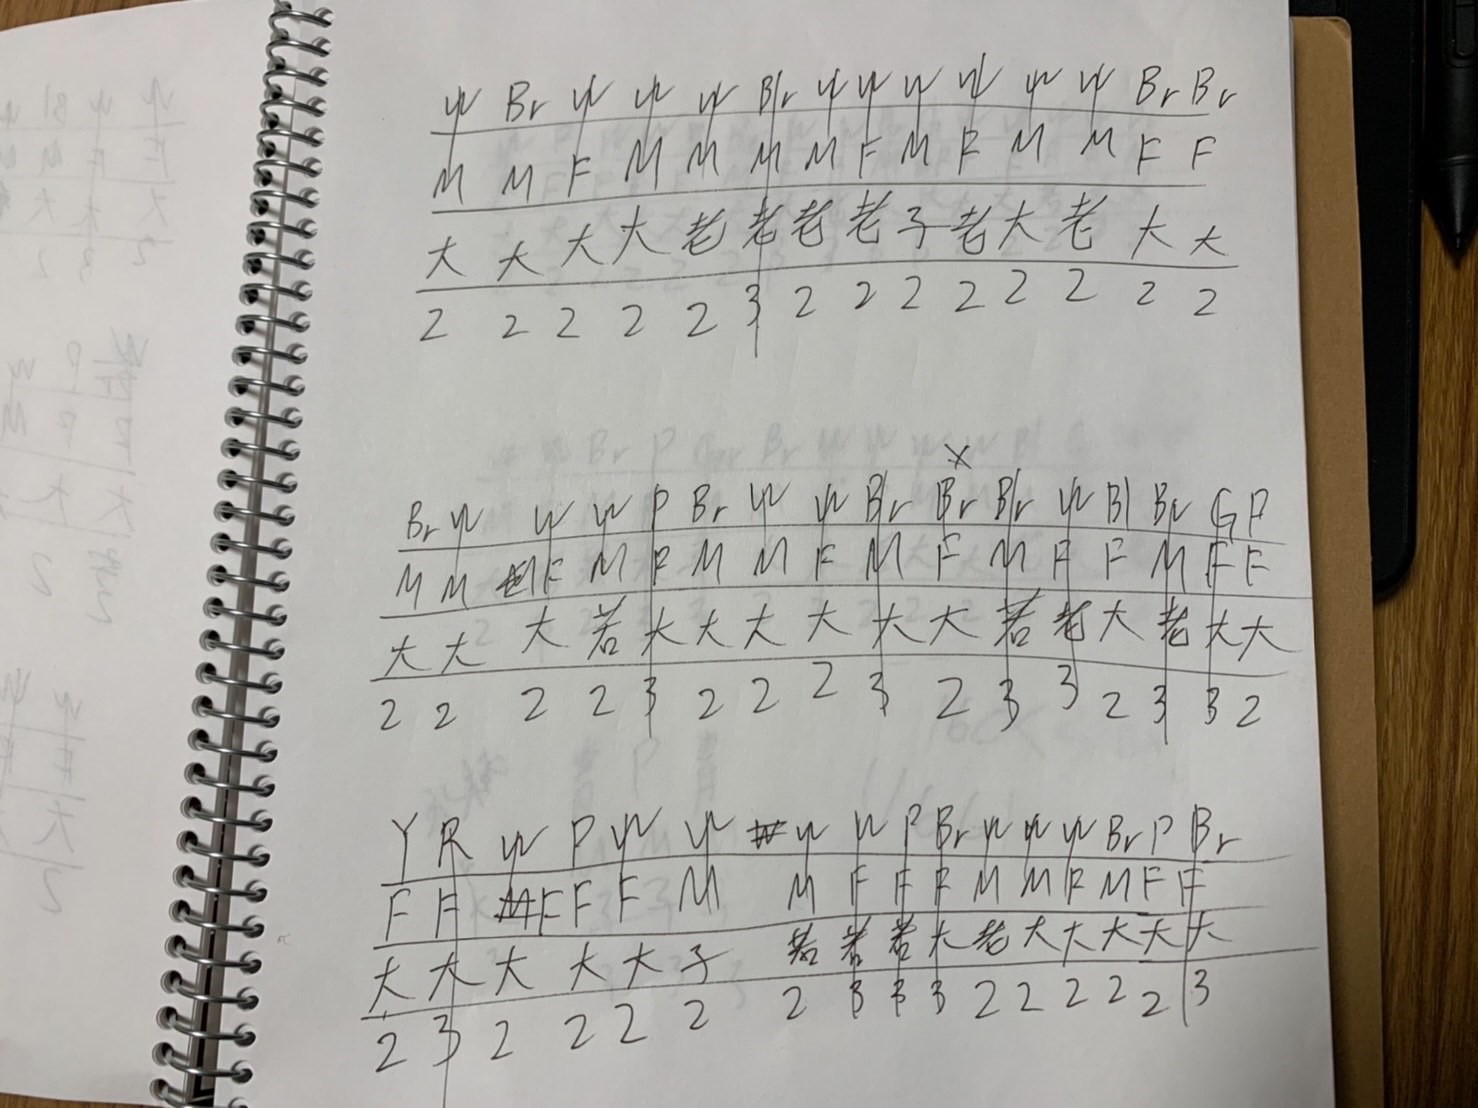 W Br W W W Br W W W W W W Br Br
M M F M M M M F M F M M F F
大 大 大 大 老 老 老 老 子 老 大 老 大 大
2 2 2 2 2 3 2 2 2 2 2 2 2 2
X
Br W W W P Br W W Br Br Br W Bl Br G P
M M F M F M M F M F M F F M F F
大 大 大 若 大 大 大 大 大 大 若 老 大 老 大 大
2 2 2 2 3 2 2 2 3 2 3 3 2 3 3 2
Y R W P W W W W P Br W W W Br P Br
F F F F F M M F F F M M F M F F
大 大 大 大 大 子 若 若 若 大 老 大 大 大 大 大
2 3 2 2 2 2 2 3 3 3 2 2 2 2 2 3